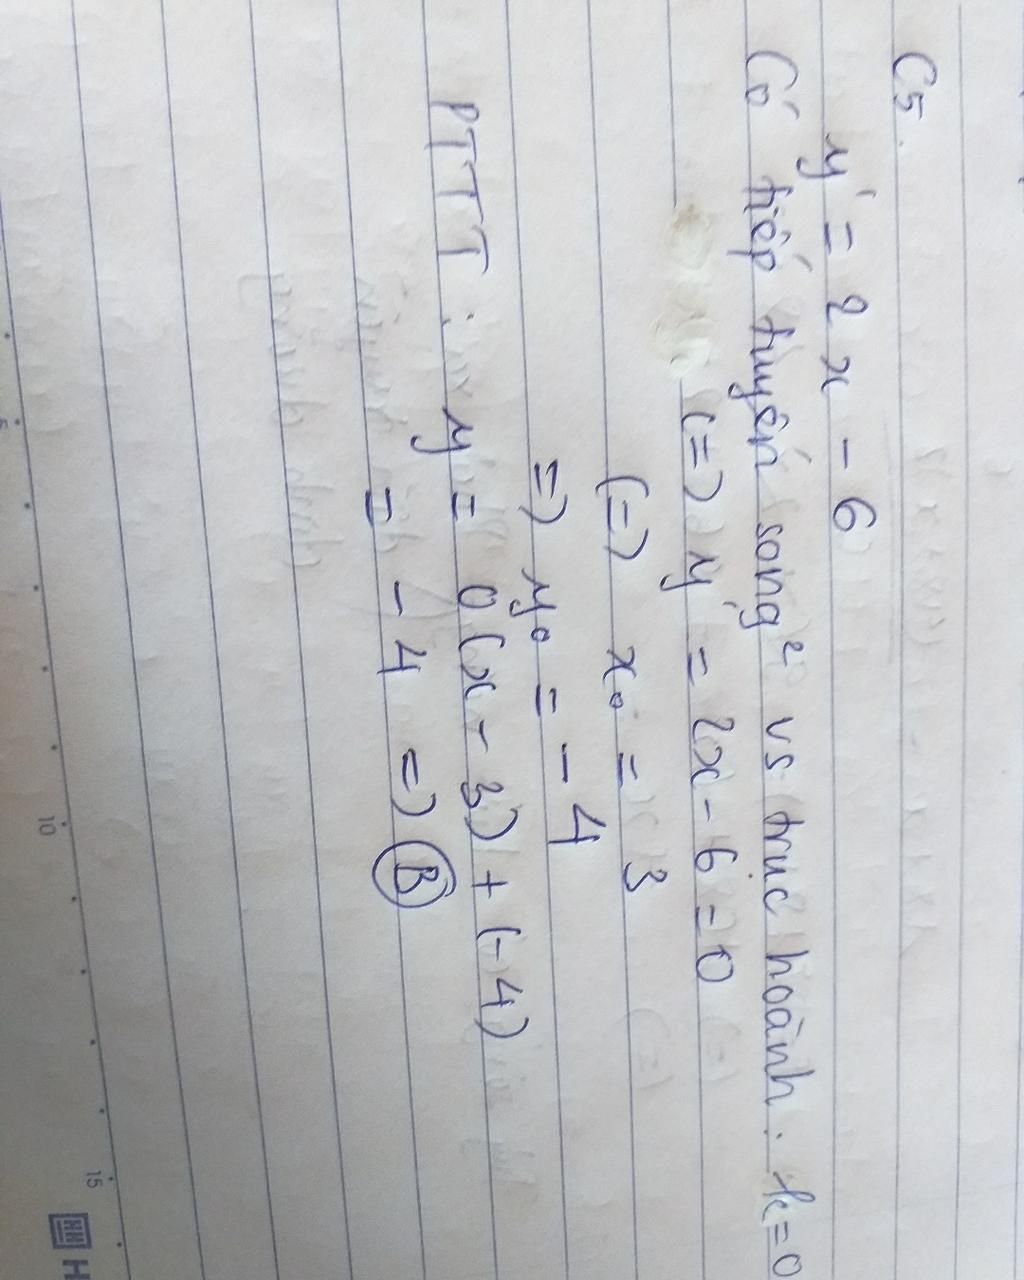 C5.
y' = 2x - 6
Có tiếp tuyến song² vs trục hoành. k=0
(=) y' = 2x - 6 = 0
(=) x₀ = 3
=) y₀ = -4
PTTT: y = 0(x - 3) + (-4)
= -4 =) B
5
10
15
H